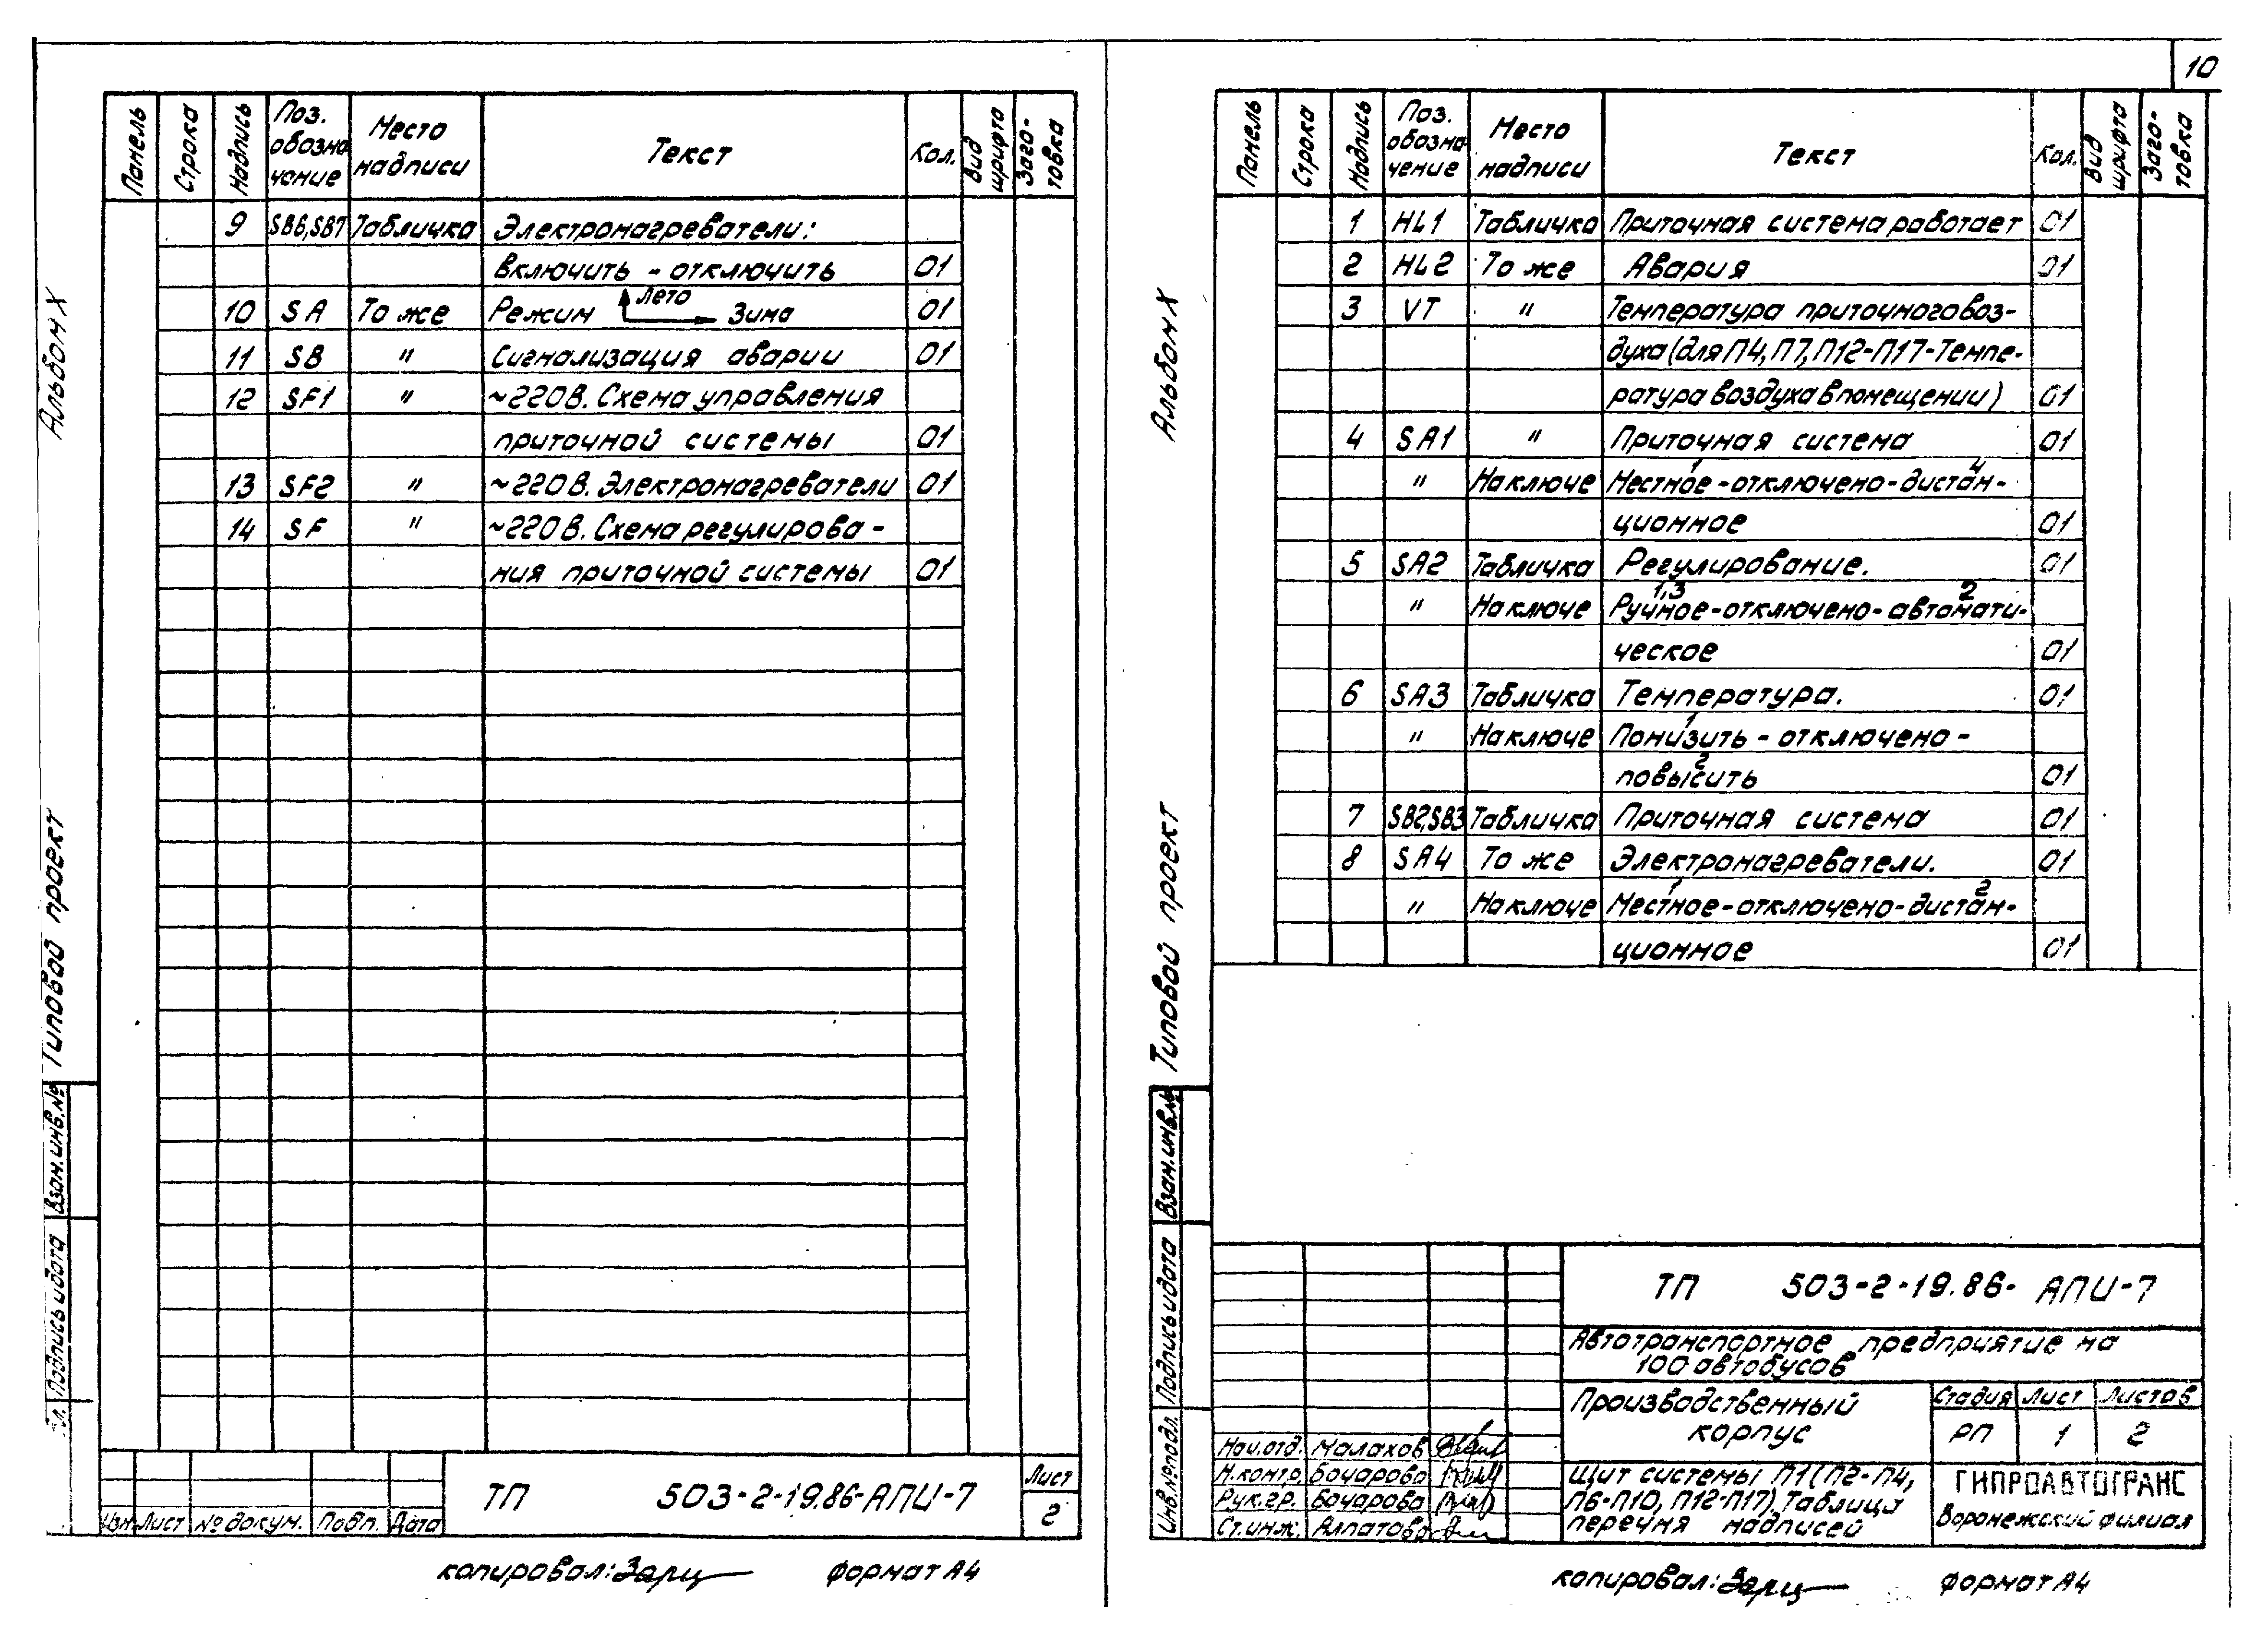 10
Альбом X
Типовой проект
Взам.инв.№
Подпись и дата
Панель Строка Надпись Поз. обозна чение Место надписи Текст Кол. Вид шрифта Заго- товка
9 SB6,SB7 Табличка Электронагреватели:
включить - отключить 01
10 SA То же Режим Лето Зима 01
11 SB " Сигнализация аварии 01
12 SF1 " ~220В. Схема управления
приточной системы 01
13 SF2 " ~220В. Электронагреватели 01
14 SF " ~220В. Схема регулирова -
ния приточной системы 01
Изм. Лист № докум. Подп. Дата
ТП 503-2-19.86-АПИ-7
Лист
2
копировал: Зарц формат А4
Альбом X
Типовой проект
Взам.инв.№
Подпись и дата
Инв.№подл.
Панель Строка Надпись Поз. обозна- чение Место надписи Текст Кол. Вид шрифта Заго- товка
1 HL1 Табличка Приточная система работает 01
2 HL2 То же Авария 01
3 VT " Температура приточного воз-
духа (для П4, П7, П12-П17-Темпе-
ратура воздуха в помещении) 01
4 SA1 " Приточная система 01
1 4
" На ключе Местное - отключено - дистан -
ционное 01
5 SA2 Табличка Регулирование. 01
1,3 2
" На ключе Ручное - отключено - автомати-
ческое 01
6 SA3 Табличка Температура. 01
1
" На ключе Понизить - отключено -
2
повысить 01
7 SB2,SB3 Табличка Приточная система 01
8 SA4 То же Электронагреватели. 01
1 2
" На ключе Местное - отключено - дистан-
ционное 01
ТП 503-2-19.86- АПИ-7
Автотранспортное предприятие на
100 автобусов
Производственный
корпус
Стадия Лист Листов
РП 1 2
Нач.отд. Малахов
Н.контр. Бочарова
Рук.гр. Бочарова
Ст.инж. Алпатова
Щит системы П1(П2-П4,
П6-П10, П12-П17). Таблица
перечня надписей
ГИПРОАВТОТРАНС
Воронежский филиал
копировал: Зарц формат А4